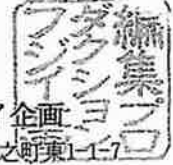 編集プロ
ダクション
フジイ
企画
之町東1-1-7